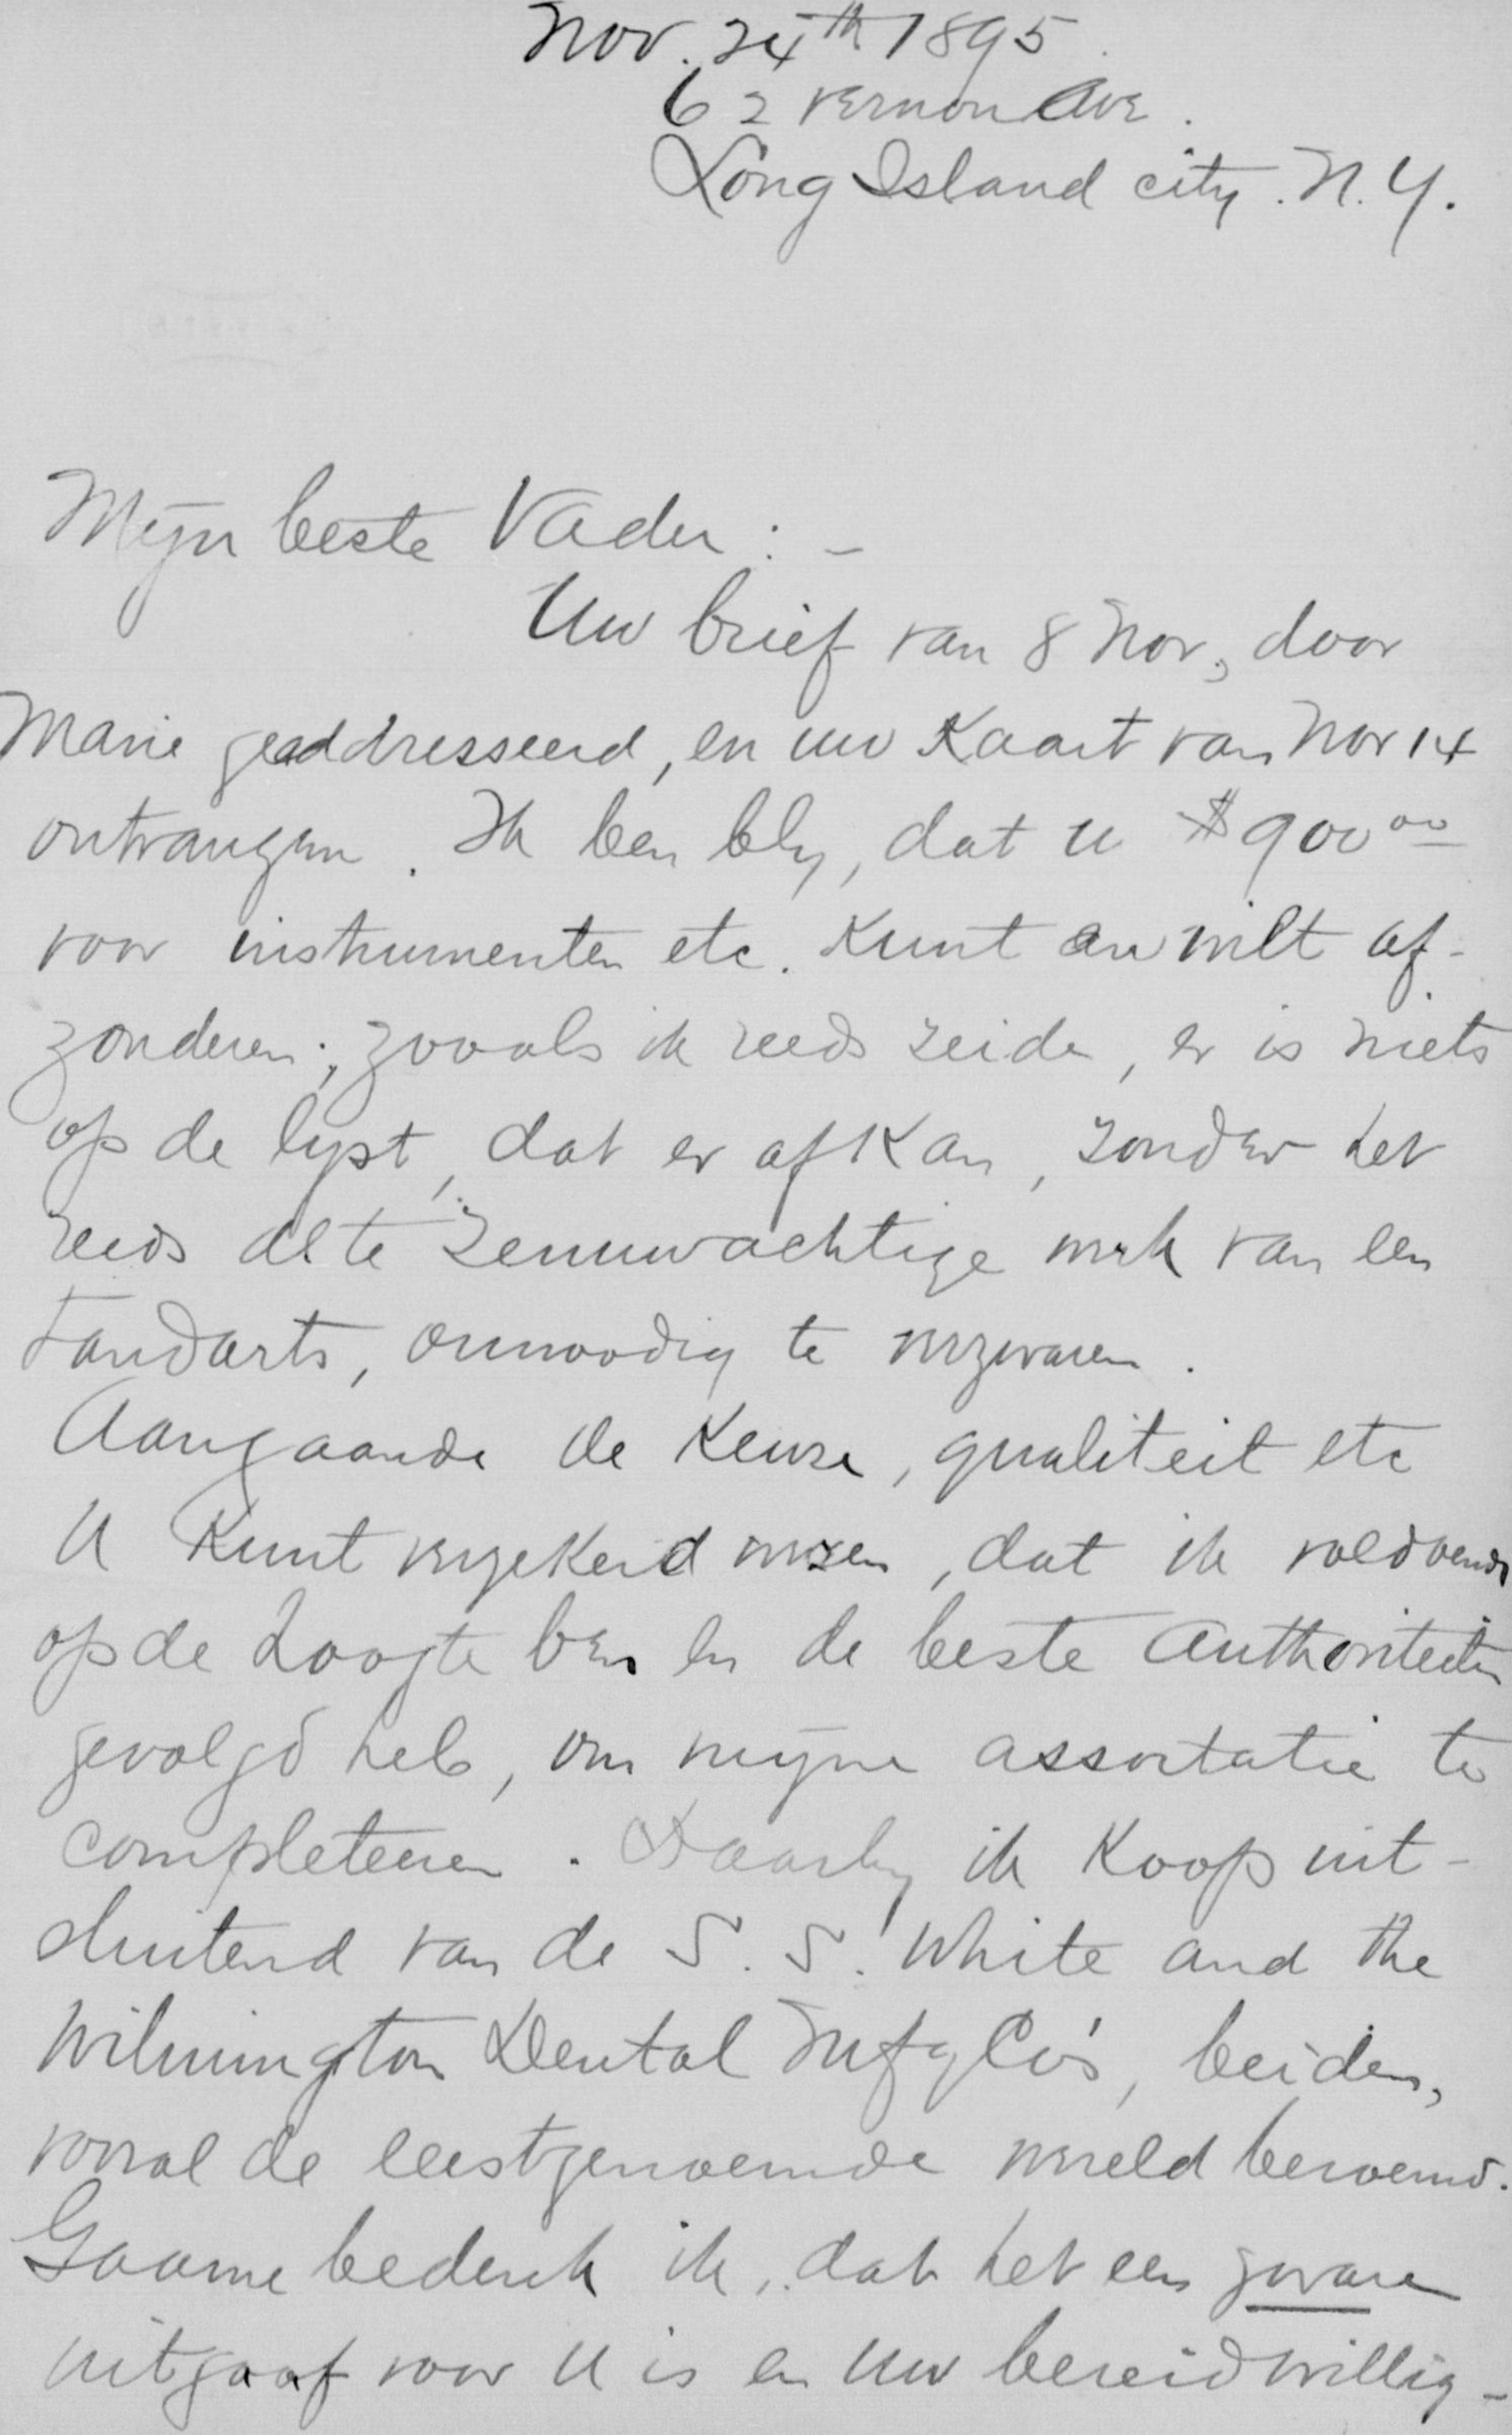 Nov. 24th 1895.
62 Vernon Ave.
Long Island city. N. Y.
Mijn beste Vader : -
Uw brief van 8 Nov, door
Marie geaddresseerd, en uw Kaart van Nov 14
ontvangen. Ik ben bly, dat u $ 900 00
voor instrumenten etc. Kunt en wilt af-
zonderen; zooals ik reeds zeide, er is niets
op de lyst, dat er af Kan, zonder het
reeds al te zenuwachtige werk van een
Tandarts, onnoodig te verzwaren.
Aangaande de Keuze, qualiteit etc
U Kunt verzekerd wezen, dat ik voldoende
op de hoogte ben en de beste Authoriteiten
gevolgd heb, om mijne assortatie te
completeeren. Daarby ik Koop uit-
sluitend van de S. S. White and the
Wilmington Dental Mfg Co's, beiden,
vooral de eerstgenoemde wereld beroemd.
Gaarne bedenk ik, dat het een zware
uitgaaf voor U is en Uw bereidwillig-